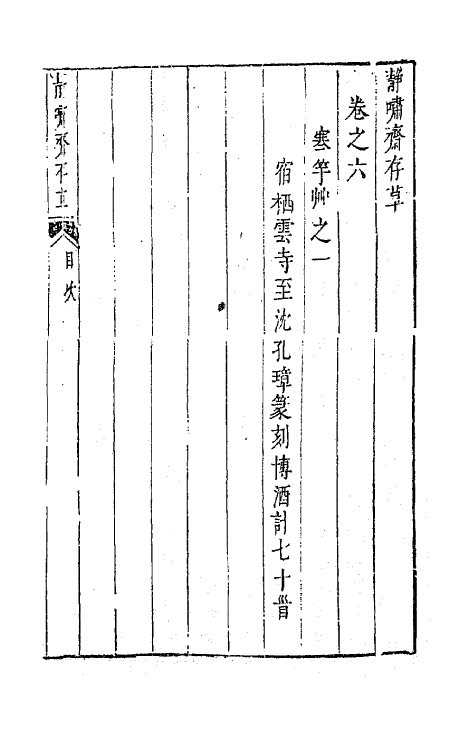 靜嘯齋存草
卷之六
寒竽艸之一
宿栖雲寺至沈孔璋篆刻博酒計七十首
靜嘯齋存草
目次